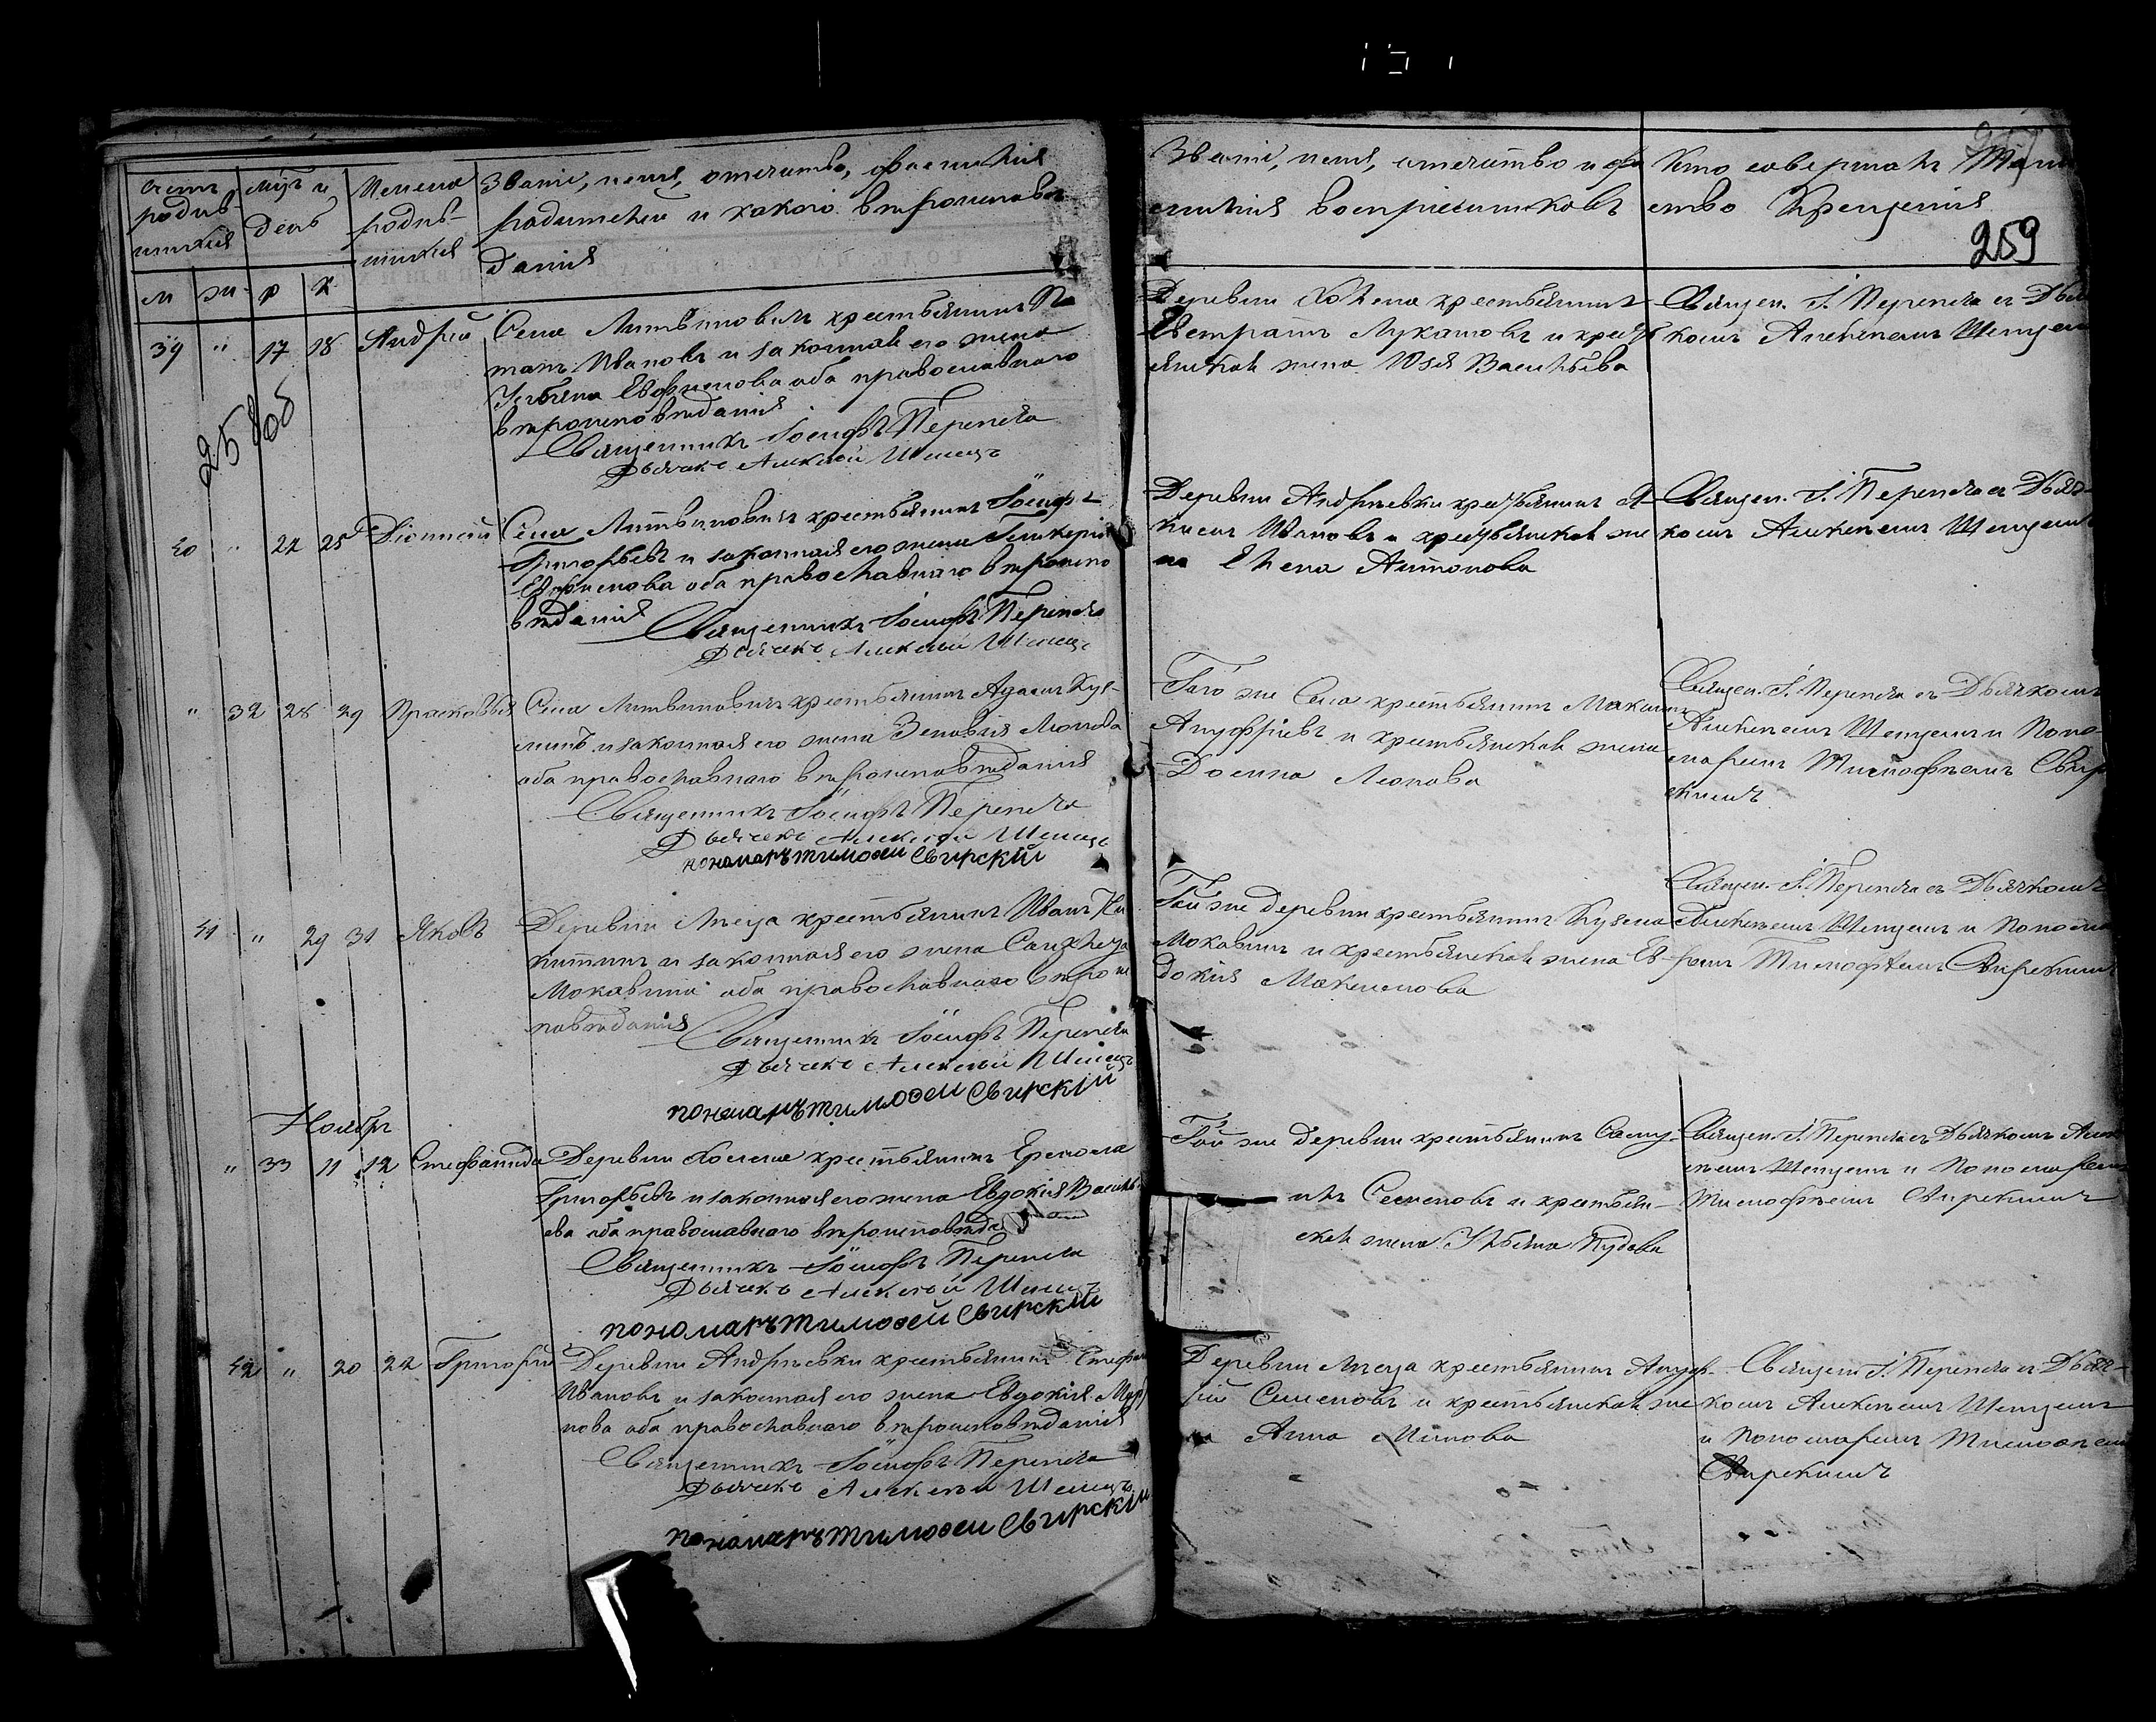 Счетъ родив-шихся
Мцъ и день
Имена родив-шихся
Званіе, имя, отчество, фамилія
родителей и какого вѣроисповѣ
данія
м ж р к
39 " 17 18 Андрей Села Литвиновичъ крестьянинъ По
тапъ Ивановъ и законная его жена
Ульяна Евфимова оба православнаго
вѣроисповѣданія
Священникъ Іосифъ Перепеча
Дьячекъ Алексѣй
258 об
40 " 22 25 Діонисій Села Литвиновичъ крестьянинъ Іосифъ
Григорьевъ и законная его жена Гликерія
Евфимова оба православнаго вѣроиспо
вѣданія
Священникъ Іосифъ Перепеча
Дьячекъ Алексѣй
" 32 28 29 Прасковья Села Литвиновичъ крестьянинъ Адамъ Куз-
минъ и законная его жена Зеновія Леонова
оба православнаго вѣроисповѣданія
Священникъ Іосифъ Перепеча
Дьячекъ Алексѣй
пономаръ тимоѳей Свирскій
41 " 29 31 Яковъ Деревни крестьянинъ Иванъ Ни
китинъ и законная его жена
оба православнаго вѣроис
повѣданія
Священникъ Іосифъ Перепеча
Дьячекъ Алексѣй
пономаръ тимоѳей Свирскій
Ноябрь
" 33 11 12 Стефанида Деревни крестьянинъ Ермола
Григорьевъ и законная его жена Евдокія Василь
ева оба православнаго вѣроисповѣда
Священникъ Іосифъ Перепеча
Дьячекъ Алексѣй
пономаръ тимоѳей Свирскій
42 " 20 22 Григорій Деревни Андреевки крестьянинъ Стефанъ
Ивановъ и законная его жена Евдокія
оба православнаго вѣроисповѣданія
Священникъ Іосифъ Перепеча
Дьячекъ Алексѣй
пономаръ тимоѳей Свирскій
Званіе, имя, отчество и фа
милія воспріемниковъ
Кто совершалъ Таин
ство Крещенія
259
Деревни крестьянинъ
Евстратъ Лукашовъ и крест
янская жена Юзя Васильева
Священ. І. Перепеча съ Дьяч
комъ Алексѣемъ
Деревни Андреевки крестьянинъ А-
кимъ Ивановъ и крестьянская же
на Елена Антонова
Священ. І. Перепеча съ Дьяч-
комъ Алексѣемъ
Того же Села крестьянинъ Максимъ
Ануфріевъ и крестьянская жена
Домна Леонова
Священ. І. Перепеча съ Дьячкомъ
Алексѣемъ и Поно-
маремъ Тимофѣемъ Свир
скимъ
Той же деревни крестьянинъ Кузьма
и крестьянская жена Ев
докія Максимова
Священ. І. Перепеча съ Дьячкомъ
Алексѣемъ и Понома
ремъ Тимофѣемъ Свирскимъ
Той же деревни крестьянинъ Саму-
илъ Семеновъ и крестьян-
ская жена Ульяна
Священ. І. Перепеча съ Дьячкомъ Алек
сѣемъ и Пономаремъ
Тимофѣемъ Свирскимъ
Деревни крестьянинъ Ануф-
рій Семеновъ и крестьянская же
на Анна
Священ. І. Перепеча съ Дьяч-
комъ Алексѣемъ
и Пономаремъ Тимоѳѣемъ
Свирскимъ